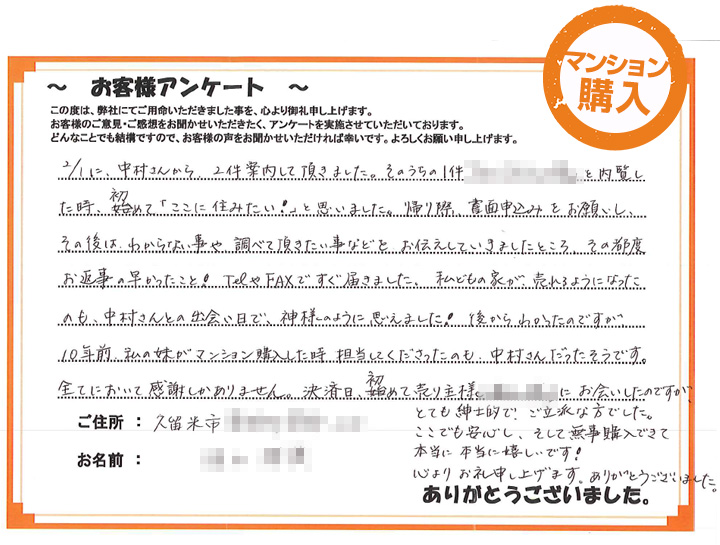 マンション
購入
～ お客様アンケート ～
この度は、弊社にてご用命いただきました事を、心より御礼申し上げます。
お客様のご意見・ご感想をお聞かせいただきたく、アンケートを実施させていただいております。
どんなことでも結構ですので、お客様の声をお聞かせいただければ幸いです。よろしくお願い申し上げます。
2/1に、中村さんから、2件案内して頂きました。そのうちの1件 を内覧し
た時、初始めて「ここに住みたい!」と思いました。帰り際、書面申込みをお願いし、
その後は、わからない事や、調べて頂きたい事などを、お伝えしていきましたところ、その都度
お返事の早かったこと! TelやFAXですぐ届きました、私どもの家が、売れるようになった
のも、中村さんとの出会い日で、神様のように思えました! 後からわかったのですが、
10年前、私の妹がマンション購入した時、担当してくださったのも、中村さんだったそうです。
全てにおいて感謝しかありません。決済日、初始めて売り主様 にお会いしたのですが、
とても紳士的で、ご立派な方でした。
ここでも安心し、そして無事購入できて
本当に本当に嬉しいです!
心よりお礼申し上げます。ありがとうございました。
ご住所 : 久留米市
お名前 :
ありがとうございました。